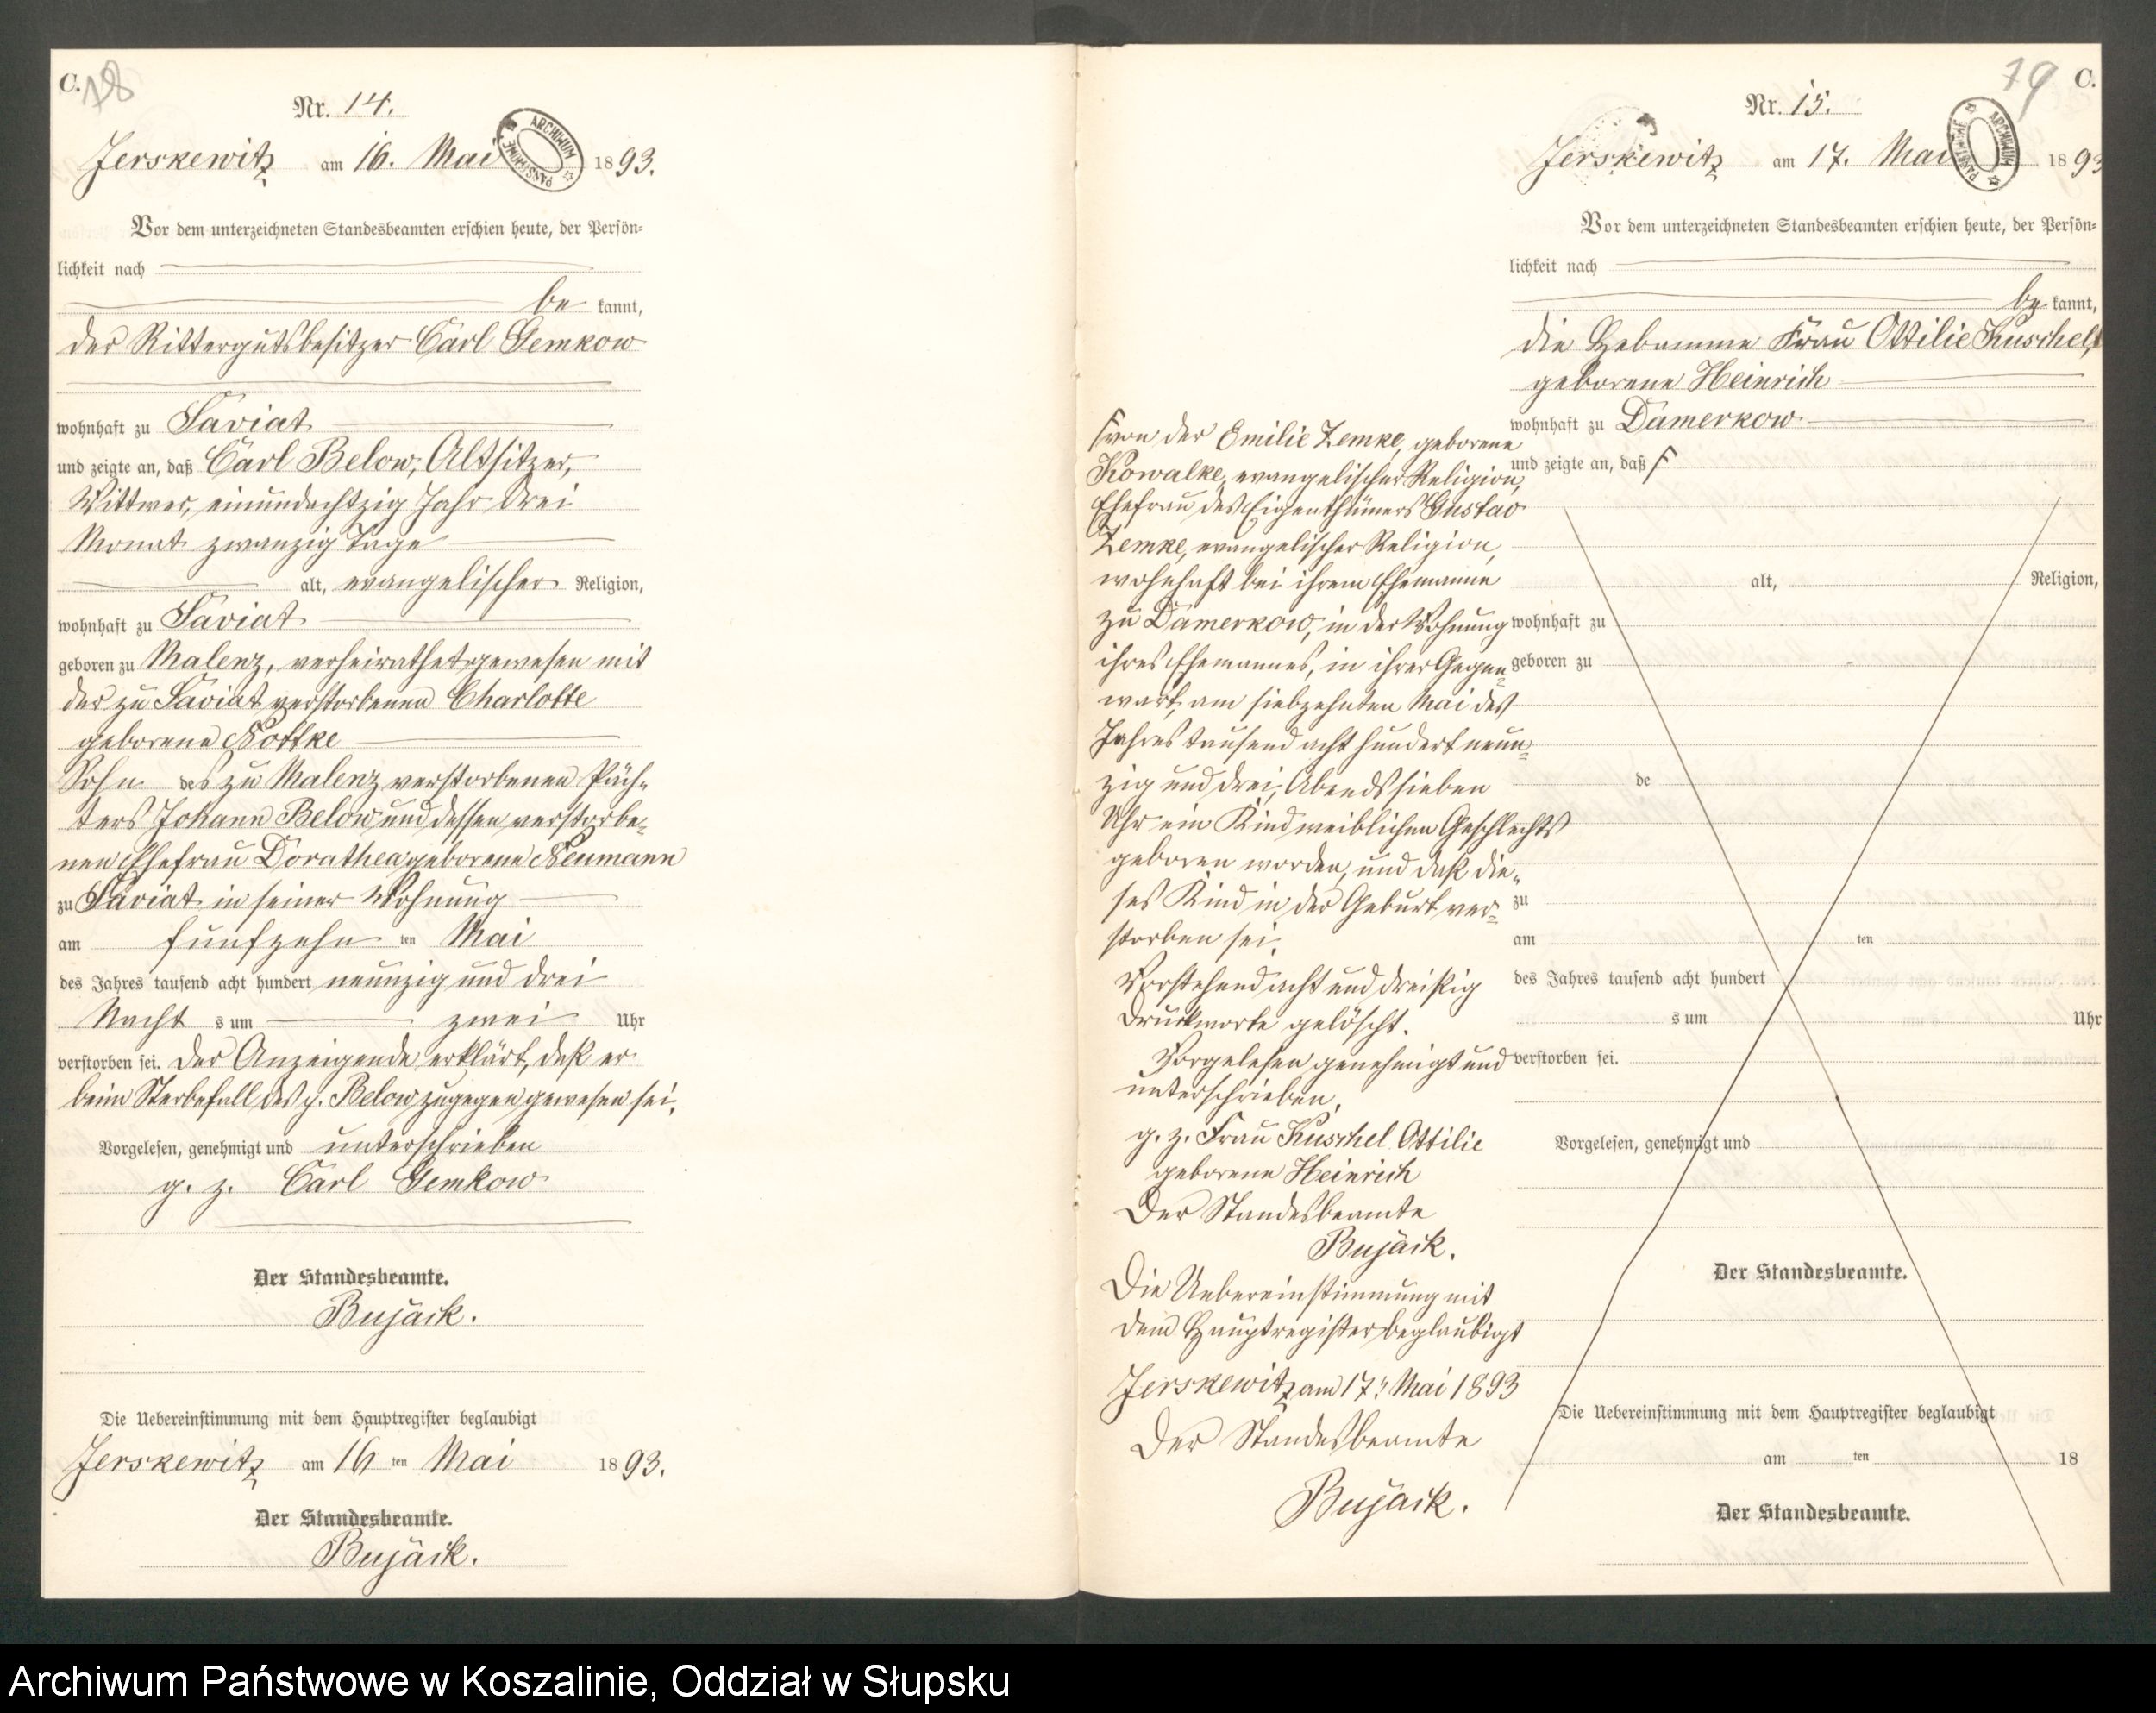 C.
18
Nr. 14.
Jerskewitz am 16. Mai 1893.
ARCHIWUM PAŃSTWOWE
Vor dem unterzeichneten Standesbeamten erschien heute, der Persön-
lichkeit nach
be kannt,
der Rittergutsbesitzer Carl Gemkow
wohnhaft zu Saviat
und zeigte an, daß Carl Below, Altsitzer,
Wittwer, einundachtzig Jahr drei
Monat zwanzig Tage
alt, evangelischer Religion,
wohnhaft zu Saviat
geboren zu Malenz, verheirathet gewesen mit
der zu Saviat verstorbenen Charlotte
geborene Nottke
Sohn des zu Malenz verstorbenen Päch-
ters Johann Below und dessen verstorbe-
nen Ehefrau Dorathea geborene Neumann
zu Saviat in seiner Wohnung
am fünfzehn ten Mai
des Jahres tausend acht hundert neunzig und drei
Nacht s um zwei Uhr
verstorben sei. Der Anzeigende erklärt, daß er
beim Sterbefall des p. Below zugegen gewesen sei.
Vorgelesen, genehmigt und unterschrieben
g. z. Carl Gemkow
Der Standesbeamte.
Bujack.
Die Uebereinstimmung mit dem Hauptregister beglaubigt
Jerskewitz am 16 ten Mai 1893.
Der Standesbeamte.
Bujack.
79 C.
Nr. 15.
Jerskewitz am 17. Mai 1893
ARCHIWUM PAŃSTWOWE
Vor dem unterzeichneten Standesbeamten erschien heute, der Persön-
lichkeit nach
be kannt,
die Hebamme Frau Ottilie Kuschel,
geborene Heinrich
wohnhaft zu Damerkow
und zeigte an, daß F
F von der Emilie Zemke, geborene
Kowalke, evangelischer Religion,
Ehefrau des Eigenthümers Gustav
Zemke, evangelischer Religion,
wohnhaft bei ihrem Ehemanne
zu Damerkow, in der Wohnung
ihres Ehemannes, in ihrer Gegen-
wart, am siebzehnten Mai des
Jahres tausend acht hundert neun-
zig und drei, Abends sieben
Uhr ein Kind weiblichen Geschlechts
geboren worden, und daß die-
ses Kind in der Geburt ver-
storben sei.
Vorstehend acht und dreißig
Druckworte gelöscht.
Vorgelesen genehmigt und
unterschrieben.
g. z. Frau Kuschel Ottilie
geborene Heinrich
Der Standesbeamte
Bujack.
Die Uebereinstimmung mit
dem Hauptregister beglaubigt
Jerskewitz am 17. Mai 1893
Der Standesbeamte
Bujack.
alt, Religion,
wohnhaft zu
geboren zu
de
zu
am ten
des Jahres tausend acht hundert
s um Uhr
verstorben sei.
Vorgelesen, genehmigt und
Der Standesbeamte.
Die Uebereinstimmung mit dem Hauptregister beglaubigt
am ten 18
Der Standesbeamte.
Archiwum Państwowe w Koszalinie, Oddział w Słupsku